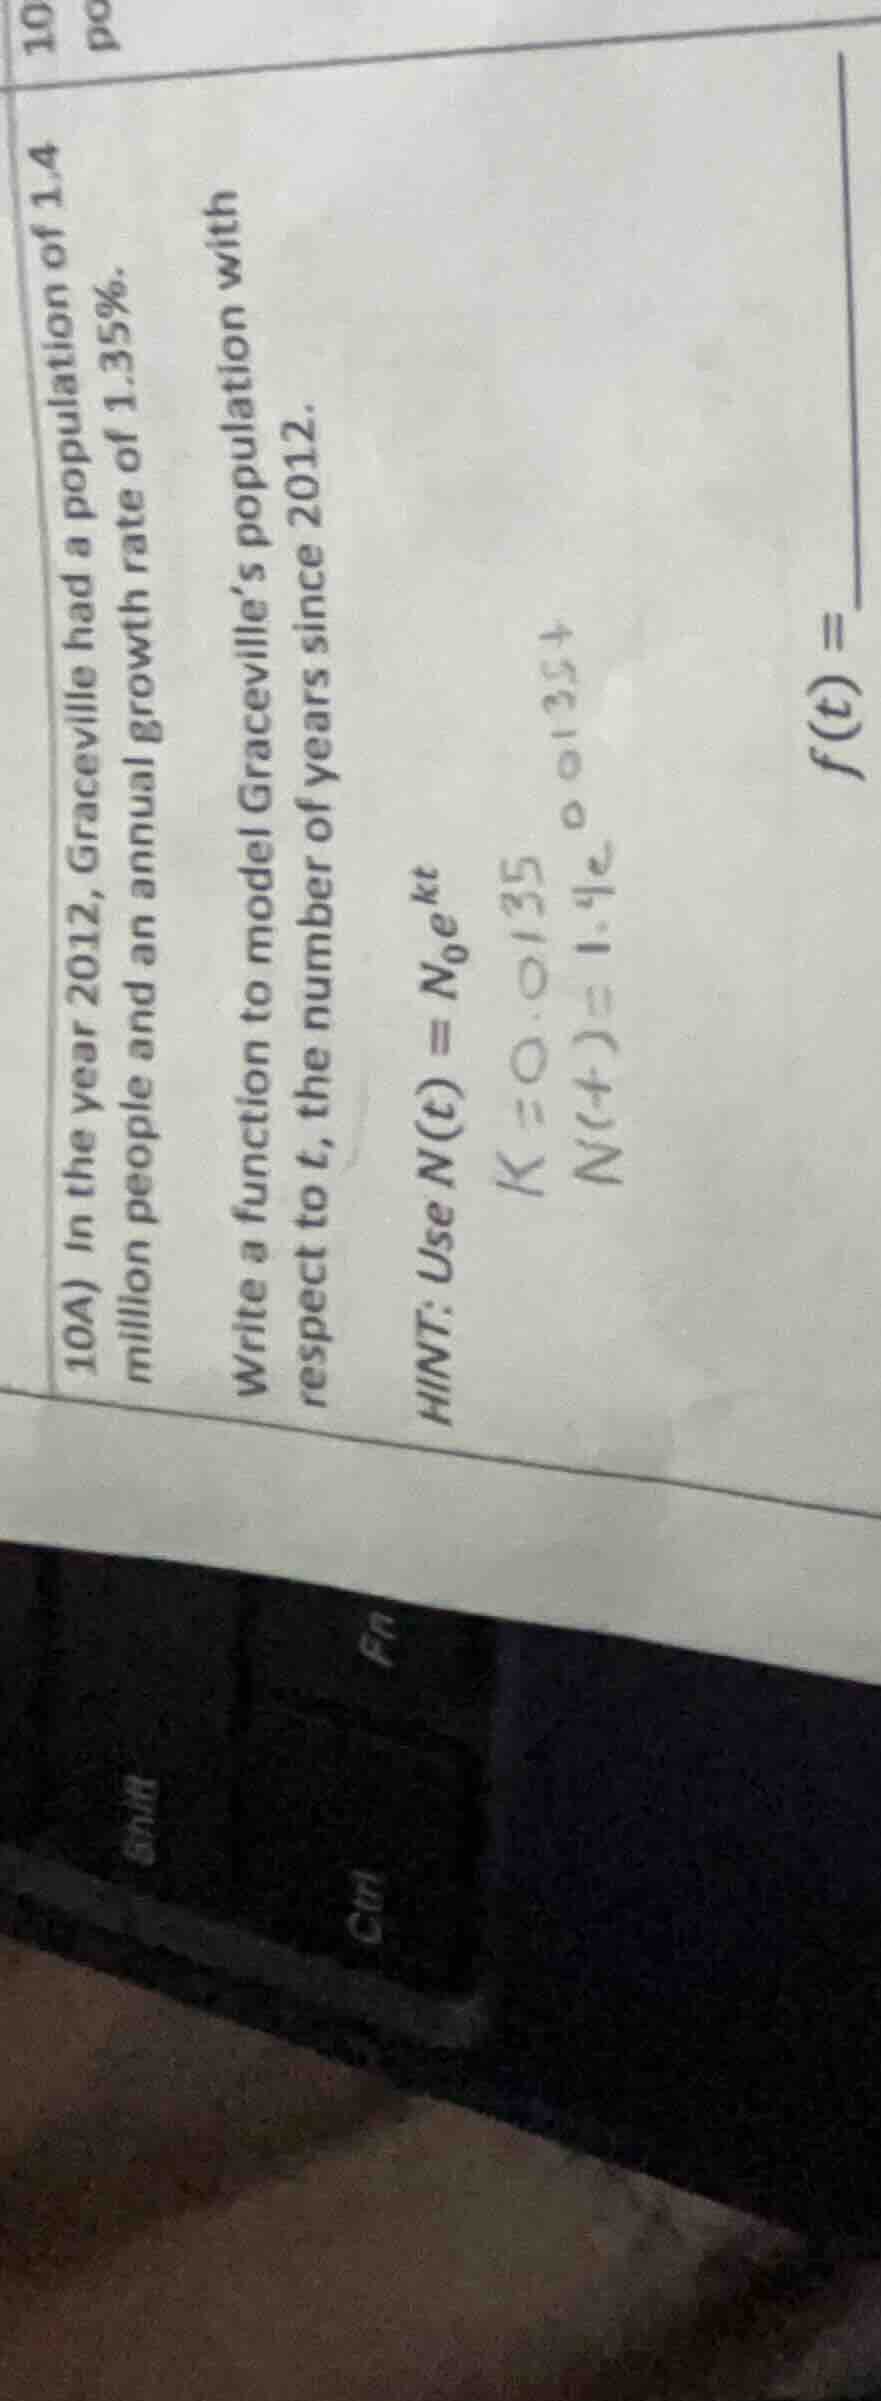 10
po
10A) In the year 2012, Graceville had a population of 1.4
million people and an annual growth rate of 1.35%.
Write a function to model Graceville's population with
respect to t, the number of years since 2012.
HINT: Use N(t) = N₀e^kt
K = 0.0135
N(t) = 1.4e^0.0135t
f(t) =
Shift
Fn
Ctrl